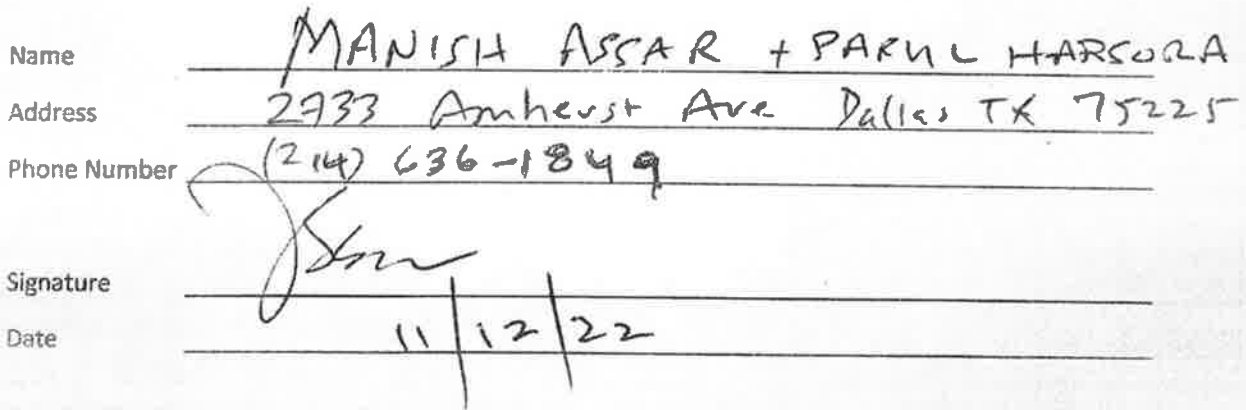 Name MANISH ASSAR + PARUL HARSORA
Address 2733 Amherst Ave Dallas TX 75225
Phone Number (214) 636-1849
Signature
Date 11/12/22